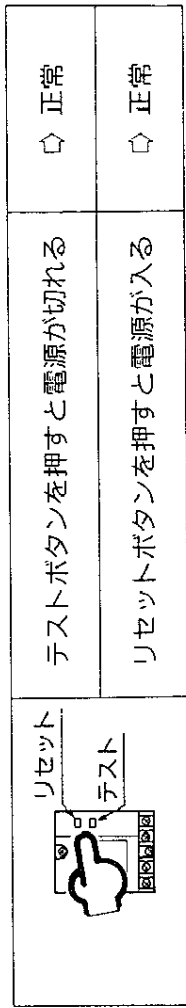 リセット
テスト
テストボタンを押すと電源が切れる ⇨ 正常
リセットボタンを押すと電源が入る ⇨ 正常